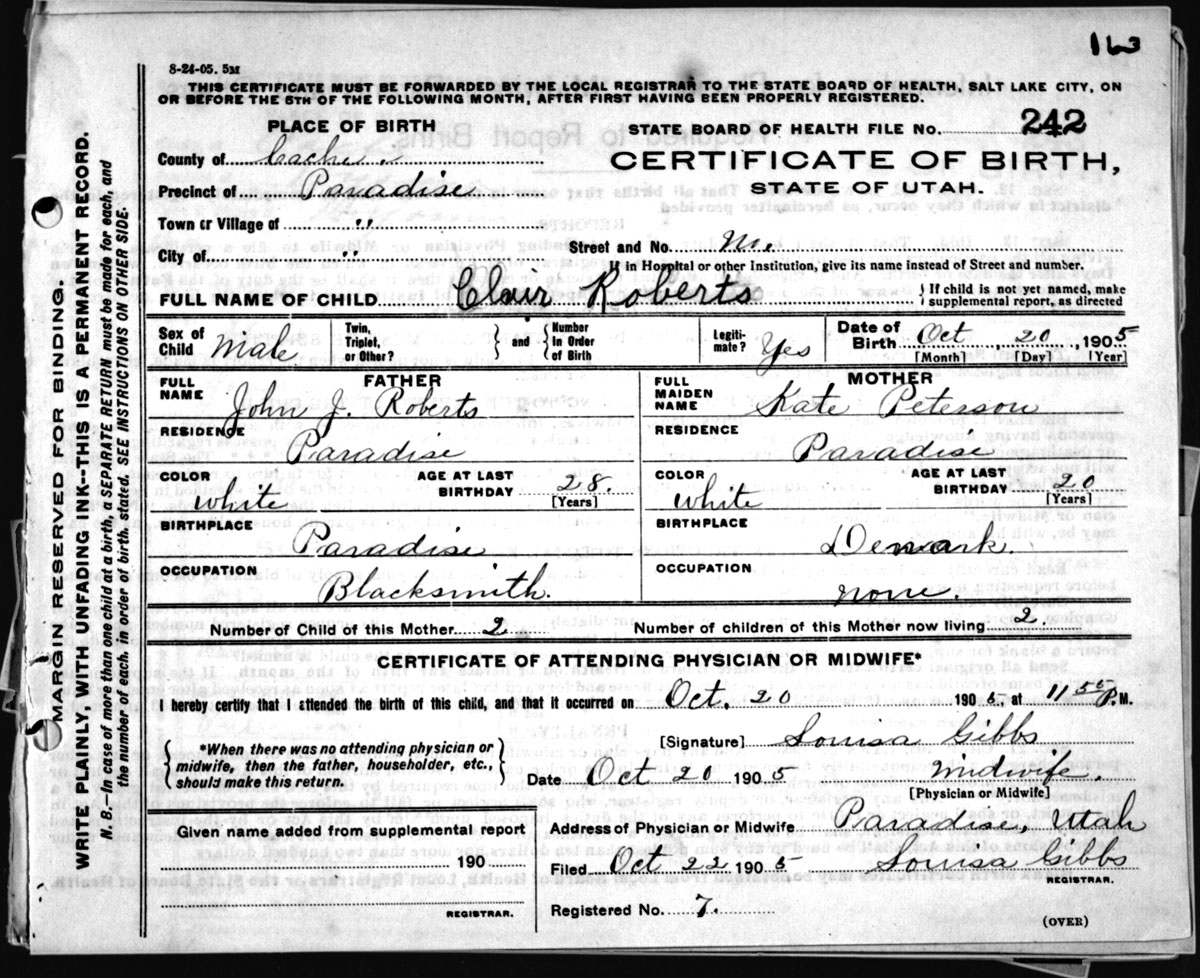 163
8-24-05. 5M
THIS CERTIFICATE MUST BE FORWARDED BY THE LOCAL REGISTRAR TO THE STATE BOARD OF HEALTH, SALT LAKE CITY, ON
OR BEFORE THE 5TH OF THE FOLLOWING MONTH, AFTER FIRST HAVING BEEN PROPERLY REGISTERED.
PLACE OF BIRTH
STATE BOARD OF HEALTH FILE No. 242
County of Cache
CERTIFICATE OF BIRTH,
Precinct of Paradise
STATE OF UTAH.
Town or Village of "
Street and No.
City of "
If in Hospital or other Institution, give its name instead of Street and number.
FULL NAME OF CHILD Clair Roberts } If child is not yet named, make supplemental report, as directed
Sex of Child Male Twin, Triplet, or Other? } and { Number In Order of Birth Legitimate? Yes Date of Birth Oct 20, 1905
[Month] [Day] [Year]
FATHER MOTHER
FULL NAME John J. Roberts FULL MAIDEN NAME Kate Peterson
RESIDENCE Paradise RESIDENCE Paradise
COLOR White AGE AT LAST BIRTHDAY 28. [Years] COLOR White AGE AT LAST BIRTHDAY 20 [Years]
BIRTHPLACE Paradise BIRTHPLACE Denmark.
OCCUPATION Blacksmith. OCCUPATION none.
Number of Child of this Mother 2 Number of children of this Mother now living 2.
CERTIFICATE OF ATTENDING PHYSICIAN OR MIDWIFE*
I hereby certify that I attended the birth of this child, and that it occurred on Oct. 20 1905, at 11 55 P.M.
{ *When there was no attending physician or midwife, then the father, householder, etc., should make this return. }
[Signature] Louisa Gibbs
Date Oct 20 1905 Midwife.
[Physician or Midwife]
Given name added from supplemental report
190
REGISTRAR.
Address of Physician or Midwife Paradise, Utah
Filed Oct 22 1905 Louisa Gibbs
REGISTRAR.
Registered No. 7.
(OVER)
MARGIN RESERVED FOR BINDING.
WRITE PLAINLY, WITH UNFADING INK--THIS IS A PERMANENT RECORD.
N. B.--In case of more than one child at a birth, a SEPARATE RETURN must be made for each, and
the number of each, in order of birth, stated. SEE INSTRUCTIONS ON OTHER SIDE.